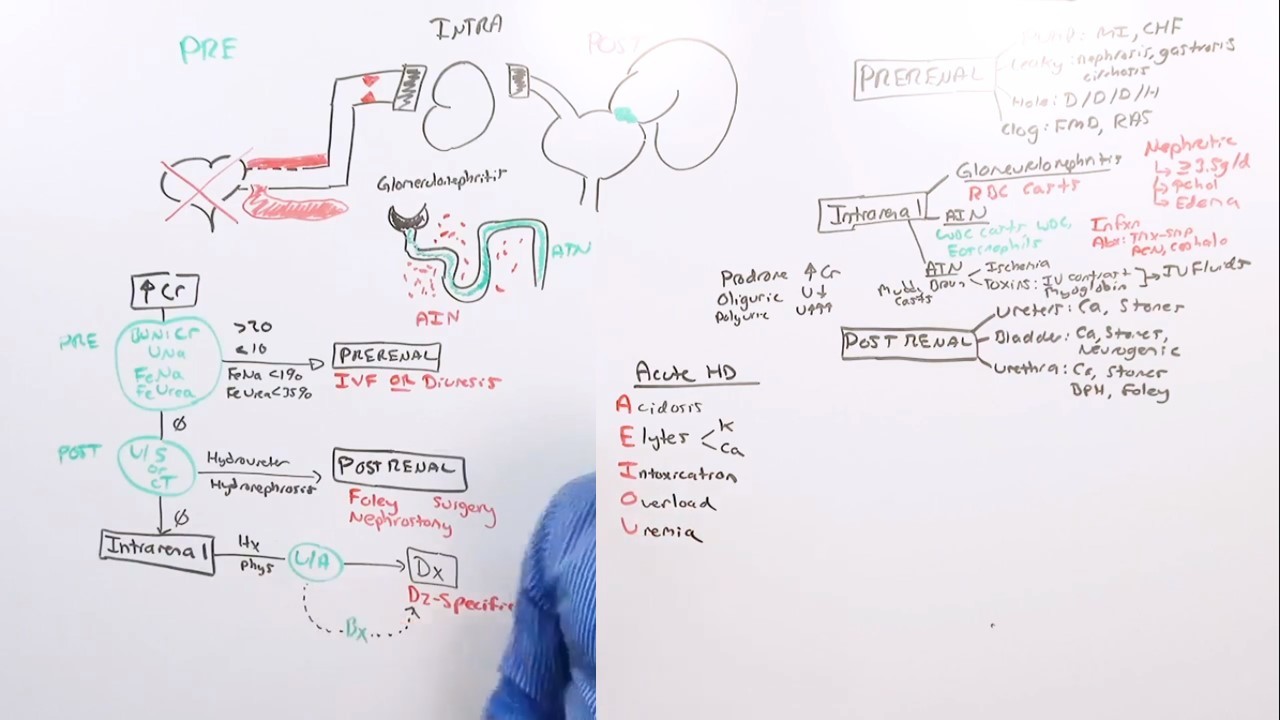 PRE
INTRA
POST
Glomerulonephritis
ATN
AIN
↑Cr
PRE
BUN:Cr
UNa
FeNa
FeUrea
>20
<10
FeNa <1%
FeUrea<35%
PRERENAL
IVF OR Diuresis
Ø
POST
U/S
or
CT
Hydroureter
Hydronephrosis
POST RENAL
Foley Surgery
Nephrostomy
Ø
Intrarenal
Hx
phys
U/A
Dx
Dz-Specific
Bx
PRERENAL
Pump: MI, CHF
Leaky: nephrosis, gastrosis
cirrhosis
Hole: D/D/D/H
Clog: FMD, RAS
Intrarenal
Glomerulonephritis
RBC Casts
Nephrotic
↳ ≥3.5g/d
↳ ↑chol
↳ Edema
AIN
WBC casts WBC,
Eosinophils
Infxn
Abx: TMX-SMP
PCN, cephalo
ATN
Muddy Brown
casts
Ischemia
Toxins: IV contrast
Myoglobin
IV Fluids
Prodrome ↑Cr
Oliguric U↓
Polyuric U↑↑↑
POST RENAL
Ureters: Ca, Stones
Bladder: Ca, Stones,
Neurogenic
Urethra: Ca, Stones
BPH, Foley
Acute HD
Acidosis
Elytes
K
Ca
Intoxication
Overload
Uremia